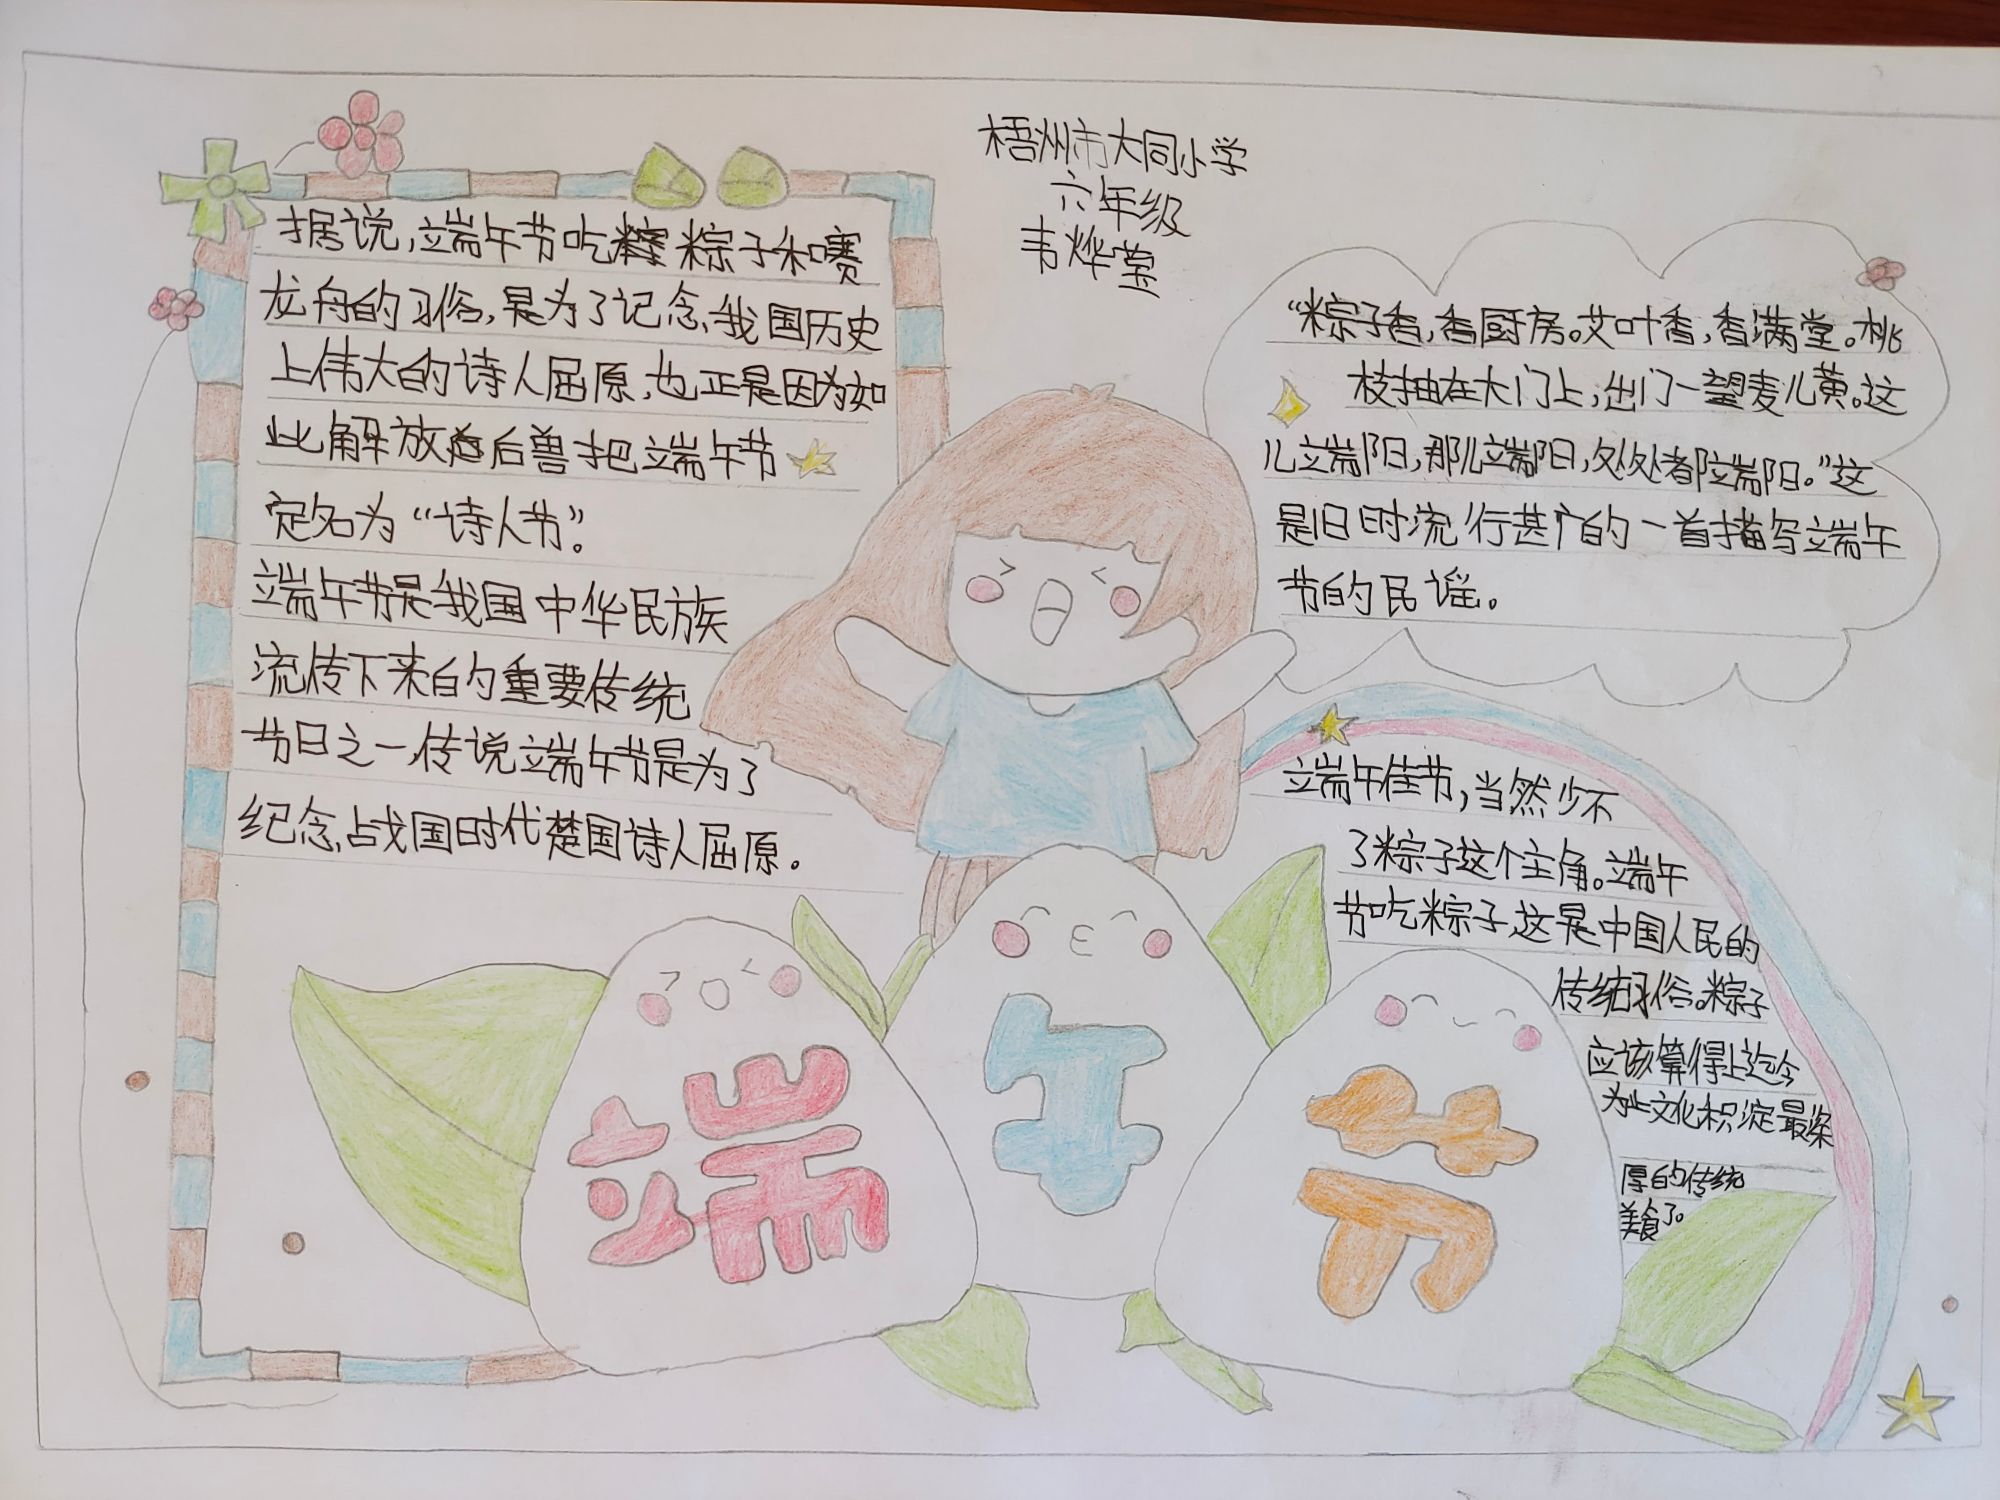 梧州市大同小学
六年级
韦烨莹
据说,端午节吃粽子和赛
龙舟的习俗,是为了记念我国历史
上伟大的诗人屈原,也正是因为如
此解放后兽把端午节
定名为“诗人节”。
端午节是我国中华民族
流传下来的重要传统
节日之一,传说端午节是为了
纪念战国时代楚国诗人屈原。
“粽子香,香厨房。艾叶香,香满堂。桃
枝抽在大门上,出门一望麦儿黄。这
儿端阳,那儿端阳,处处都端阳。”这
是旧时流行甚广的一首描写端午
节的民谣。
端午佳节,当然少不
了粽子这个主角。端午
节吃粽子,这是中国人民的
传统习俗。粽子
应该算得上迄今
为止文化积淀最深
厚的传统
美食了。
端午节